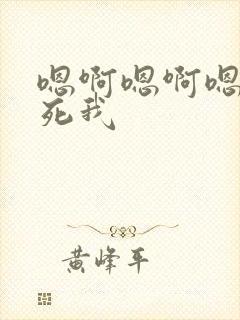 嗯啊嗯啊嗯
死我
黄峰平